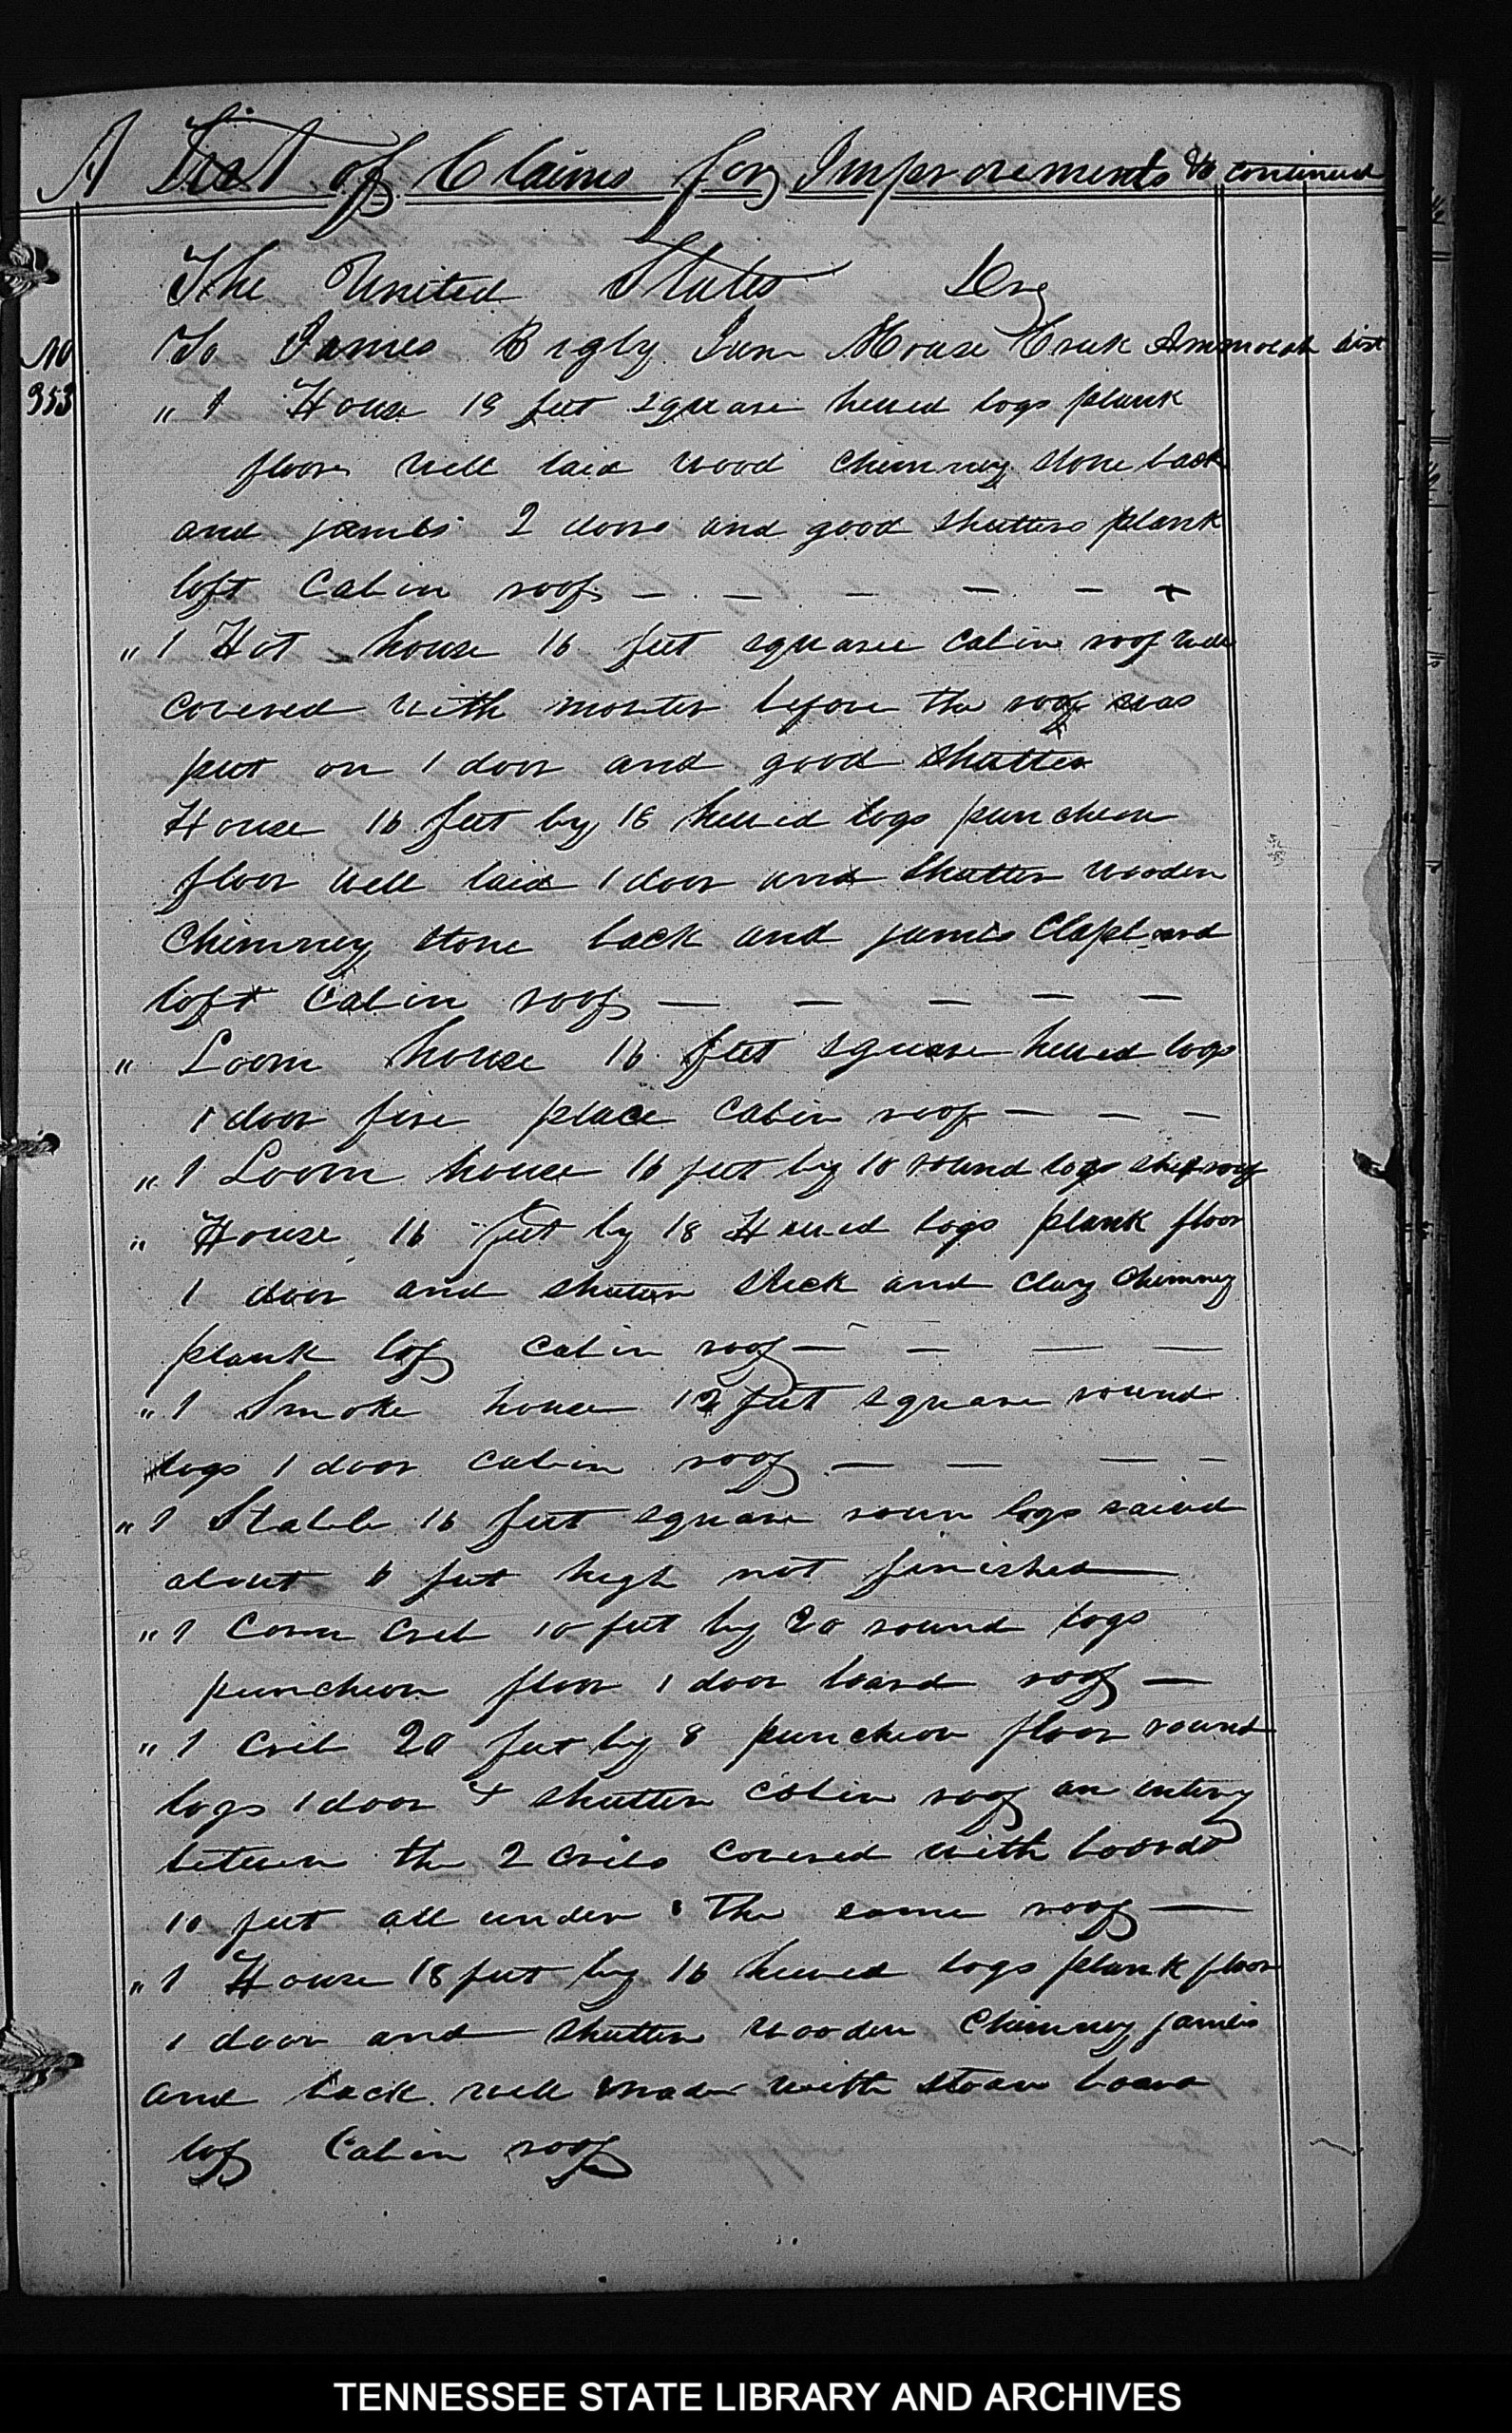 A List of Claims for Improvements &c continued
The United States Dr
No
353
To James Bigby Junr Mouse Creek Ammoeah dist
" 1 House 18 feet square hewed logs plank
floor well laid wood chimney stone back
and jambs 2 doors and good shutters plank
loft cabin roof — — — — — —
" 1 Hot house 16 feet square cabin roof well
covered with morter before the roof was
put on 1 door and good shutter
House 16 feet by 18 hewed logs puncheon
floor well laid 1 door and shutter wooden
chimney stone back and jambs Clapboard
loft cabin roof — — — — —
" Loom house 16 feet square hewed logs
1 door fire place cabin roof — — —
" 1 Loom house 16 feet by 10 round logs shed roof
" House 16 feet by 18 Hewed logs plank floor
1 door and shutter stick and clay chimney
plank lof cabin roof — — — —
" 1 Smoke house 12 feet square round
logs 1 door cabin roof — — — —
" 1 Stable 16 feet square roun logs raised
about 6 feet high not finished —
" 1 Corn Crib 10 feet by 20 round logs
puncheon floor 1 door board roof —
" 1 Crib 20 feet by 8 puncheon floor round
logs 1 door & shutter cabin roof an entery
between the 2 cribs covered with boards
10 feet all under the same roof —
" 1 House 18 feet by 16 hewed logs plank floor
1 door and shutter wooden chimney jambs
and back well made with stoan board
lof Cabin roof
TENNESSEE STATE LIBRARY AND ARCHIVES